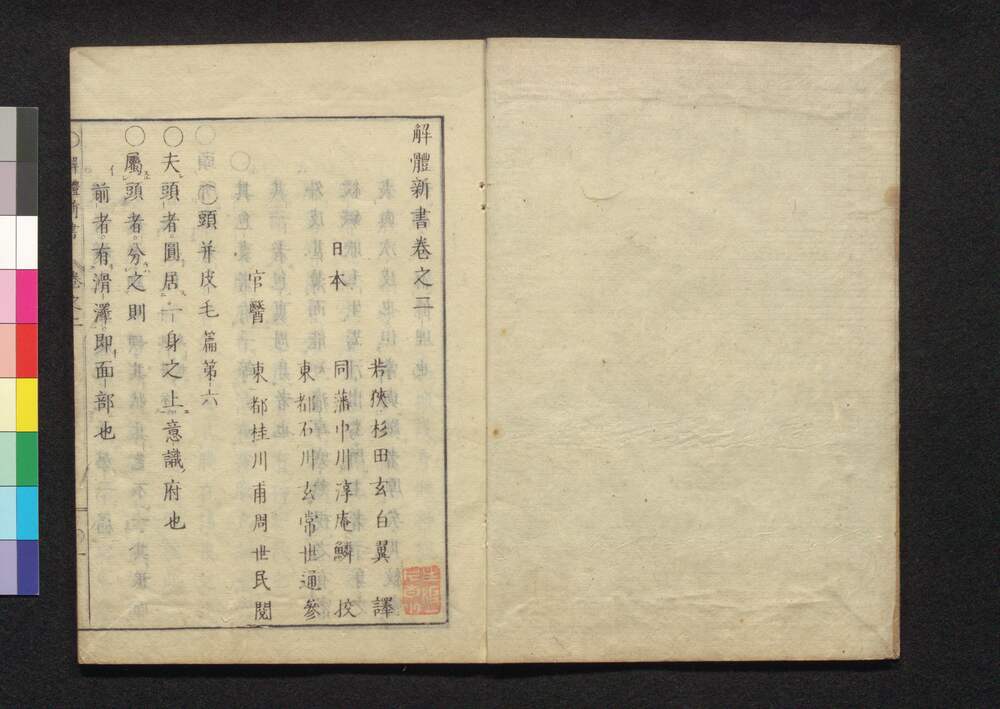 解體新書卷之二
若狹杉田玄白翼 譯
日本 同藩中川淳庵鱗 校
東都石川玄常世通 參
官醫 東都桂川甫周世民 閱
○頭并皮毛篇第六
○夫頭者。圓居一身之上。意識府也
○屬頭者。分之則
前者。有滑澤。即面部也
○解體新書 卷之二